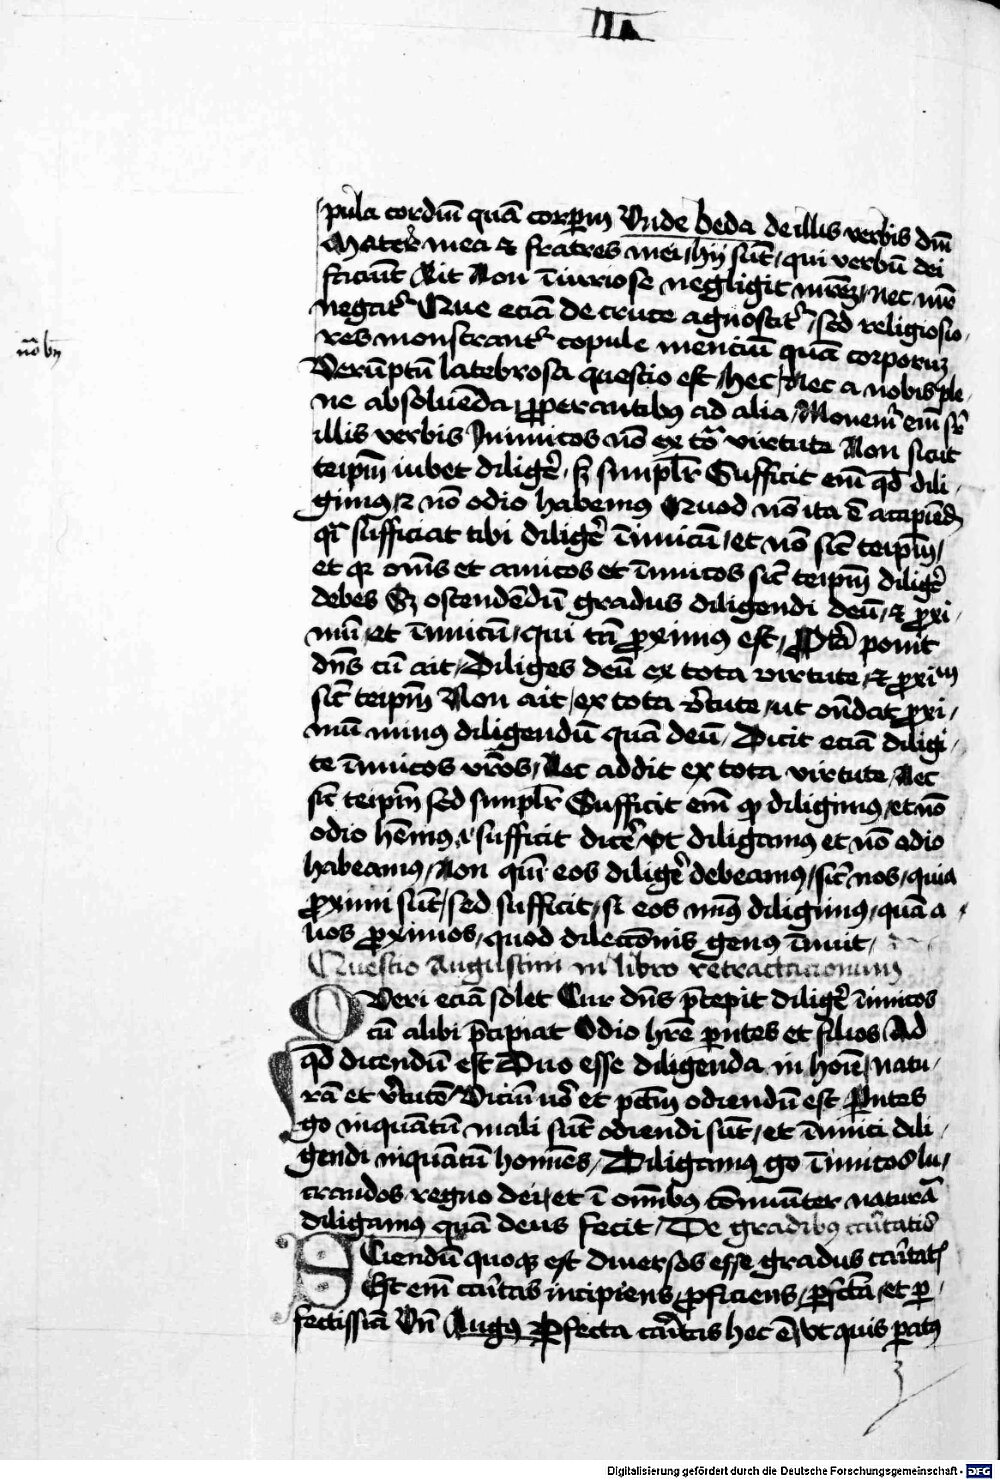 IIa
pula cordiū quā corpm̄ Vnde beda de illis verbis dm̄
Mater mea & fratres mei hij sūt, qui verbū dei
faciūt Ait Non īiurriose negligit mrēz, nec mr̄e
negat~ Que eciā de cruce agnoscit~, sed religiosio,
res monstrant~ copule mentiū quā corporuz
Verūptū latebrosa questio est, hec, Nec a nobis ple,
ne absoluēda, properantibus ad alia, Monem~ em̄ sr~
illis verbis Inimicos nō ex tō virtute Non sicut
teipm̄ iubet diligē, sz simplr̄ Sufficit em̄ qd dili,
gimus, & nō odio habemus Quod nō ita ē accipiēd
qr sufficiat tibi diligē īimicū, et nō sic̄ teipm̄,
et qr om̄s et amicos et īimicos sic̄ teipm̄ diligē
debes Sz ostendēdū gradus diligendi deū, & proxi,
mū, et īimicū, qui tn̄ proximus est, ponit
dn̄s cū ait, Diliges deū ex tota virtute, & proxim
sic̄ teipm̄ Non ait, ex tota v~tute, ut on̄dat proxi,
mū minus diligendū quā deū, Dicit eciā diligi,
te īimicos vr̄os, Nec addit ex tota virtute, Nec
sic̄ teipm̄ sed simplr̄ Sufficit em̄ qp diligimus, et nō
odio hēmus, i sufficit dicē, vt diligamus et nō odio
habeamus, Non quī eos diligē debeamus, sic̄ nos, quia
proximi sūt, sed sufficit, si eos min9 diligimus, quā a,
lios proximos, quod dilectōnis genus īnuit,
Questio Augustini in libro retractacionum
Queri eciā solet Cur dn̄s p̄cepit diligē īimicos
cū alibi p̄cipiat Odio hr̄e pn̄tes et filios Ad
qd dicendū est Duo esse diligenda in hoīe, natu,
rā et v~tutē Viciū vō et pctm̄ odiendū est Pn̄tes
go inquātū mali sūt odiendi sūt, et īimici dili,
gendi inquātū homīes, Diligamus go īimicos lu,
crandos regno dei, et ī om̄ibus cōmuniter naturā
diligamus quā deus fecit, De gradibus cār̄itatis
Sciendū quoque est diuersos esse gradus cār̄itatis
Est em̄ cār̄itas incipiens, proficiens, perfecta, et per,
fectissīa Vn̄ Augus Perfecta cār̄itas hec ē, vt quis parat9
Digitalisierung gefördert durch die Deutsche Forschungsgemeinschaft - DFG